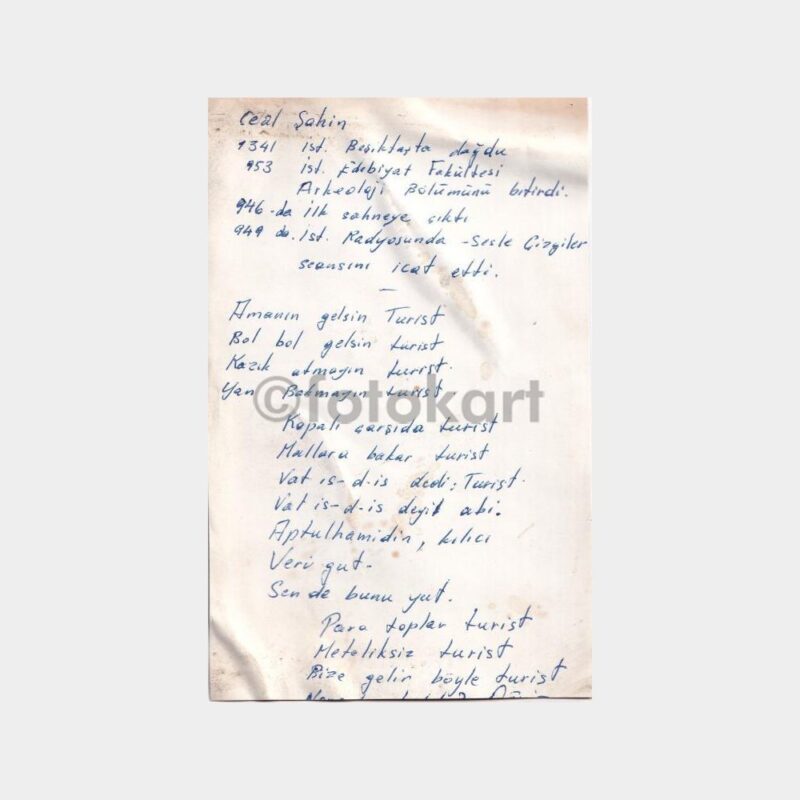 Celal Şahin
1341 ist. Beşiktaşta doğdu
953 ist. Edebiyat Fakültesi
Arkeoloji Bölümünü bitirdi.
946-da ilk sahneye çıktı
949 da. ist. Radyosunda -Sesle Çizgiler
seansını icat etti.
—
Amanın gelsin Turist
Bol bol gelsin turist
Kazık atmayın turist.
Yan Batmayın turist
©fotokart
Kapalı çarşıda turist
Mallara bakar turist
Vat is-d-is dedi: Turist.
Vat is-d-is deyil abi.
Aptulhamidin, kılıcı
Veri gut-
Sende bunu yut.
Para toplar turist
Meteliksiz turist
Bize gelir böyle turist